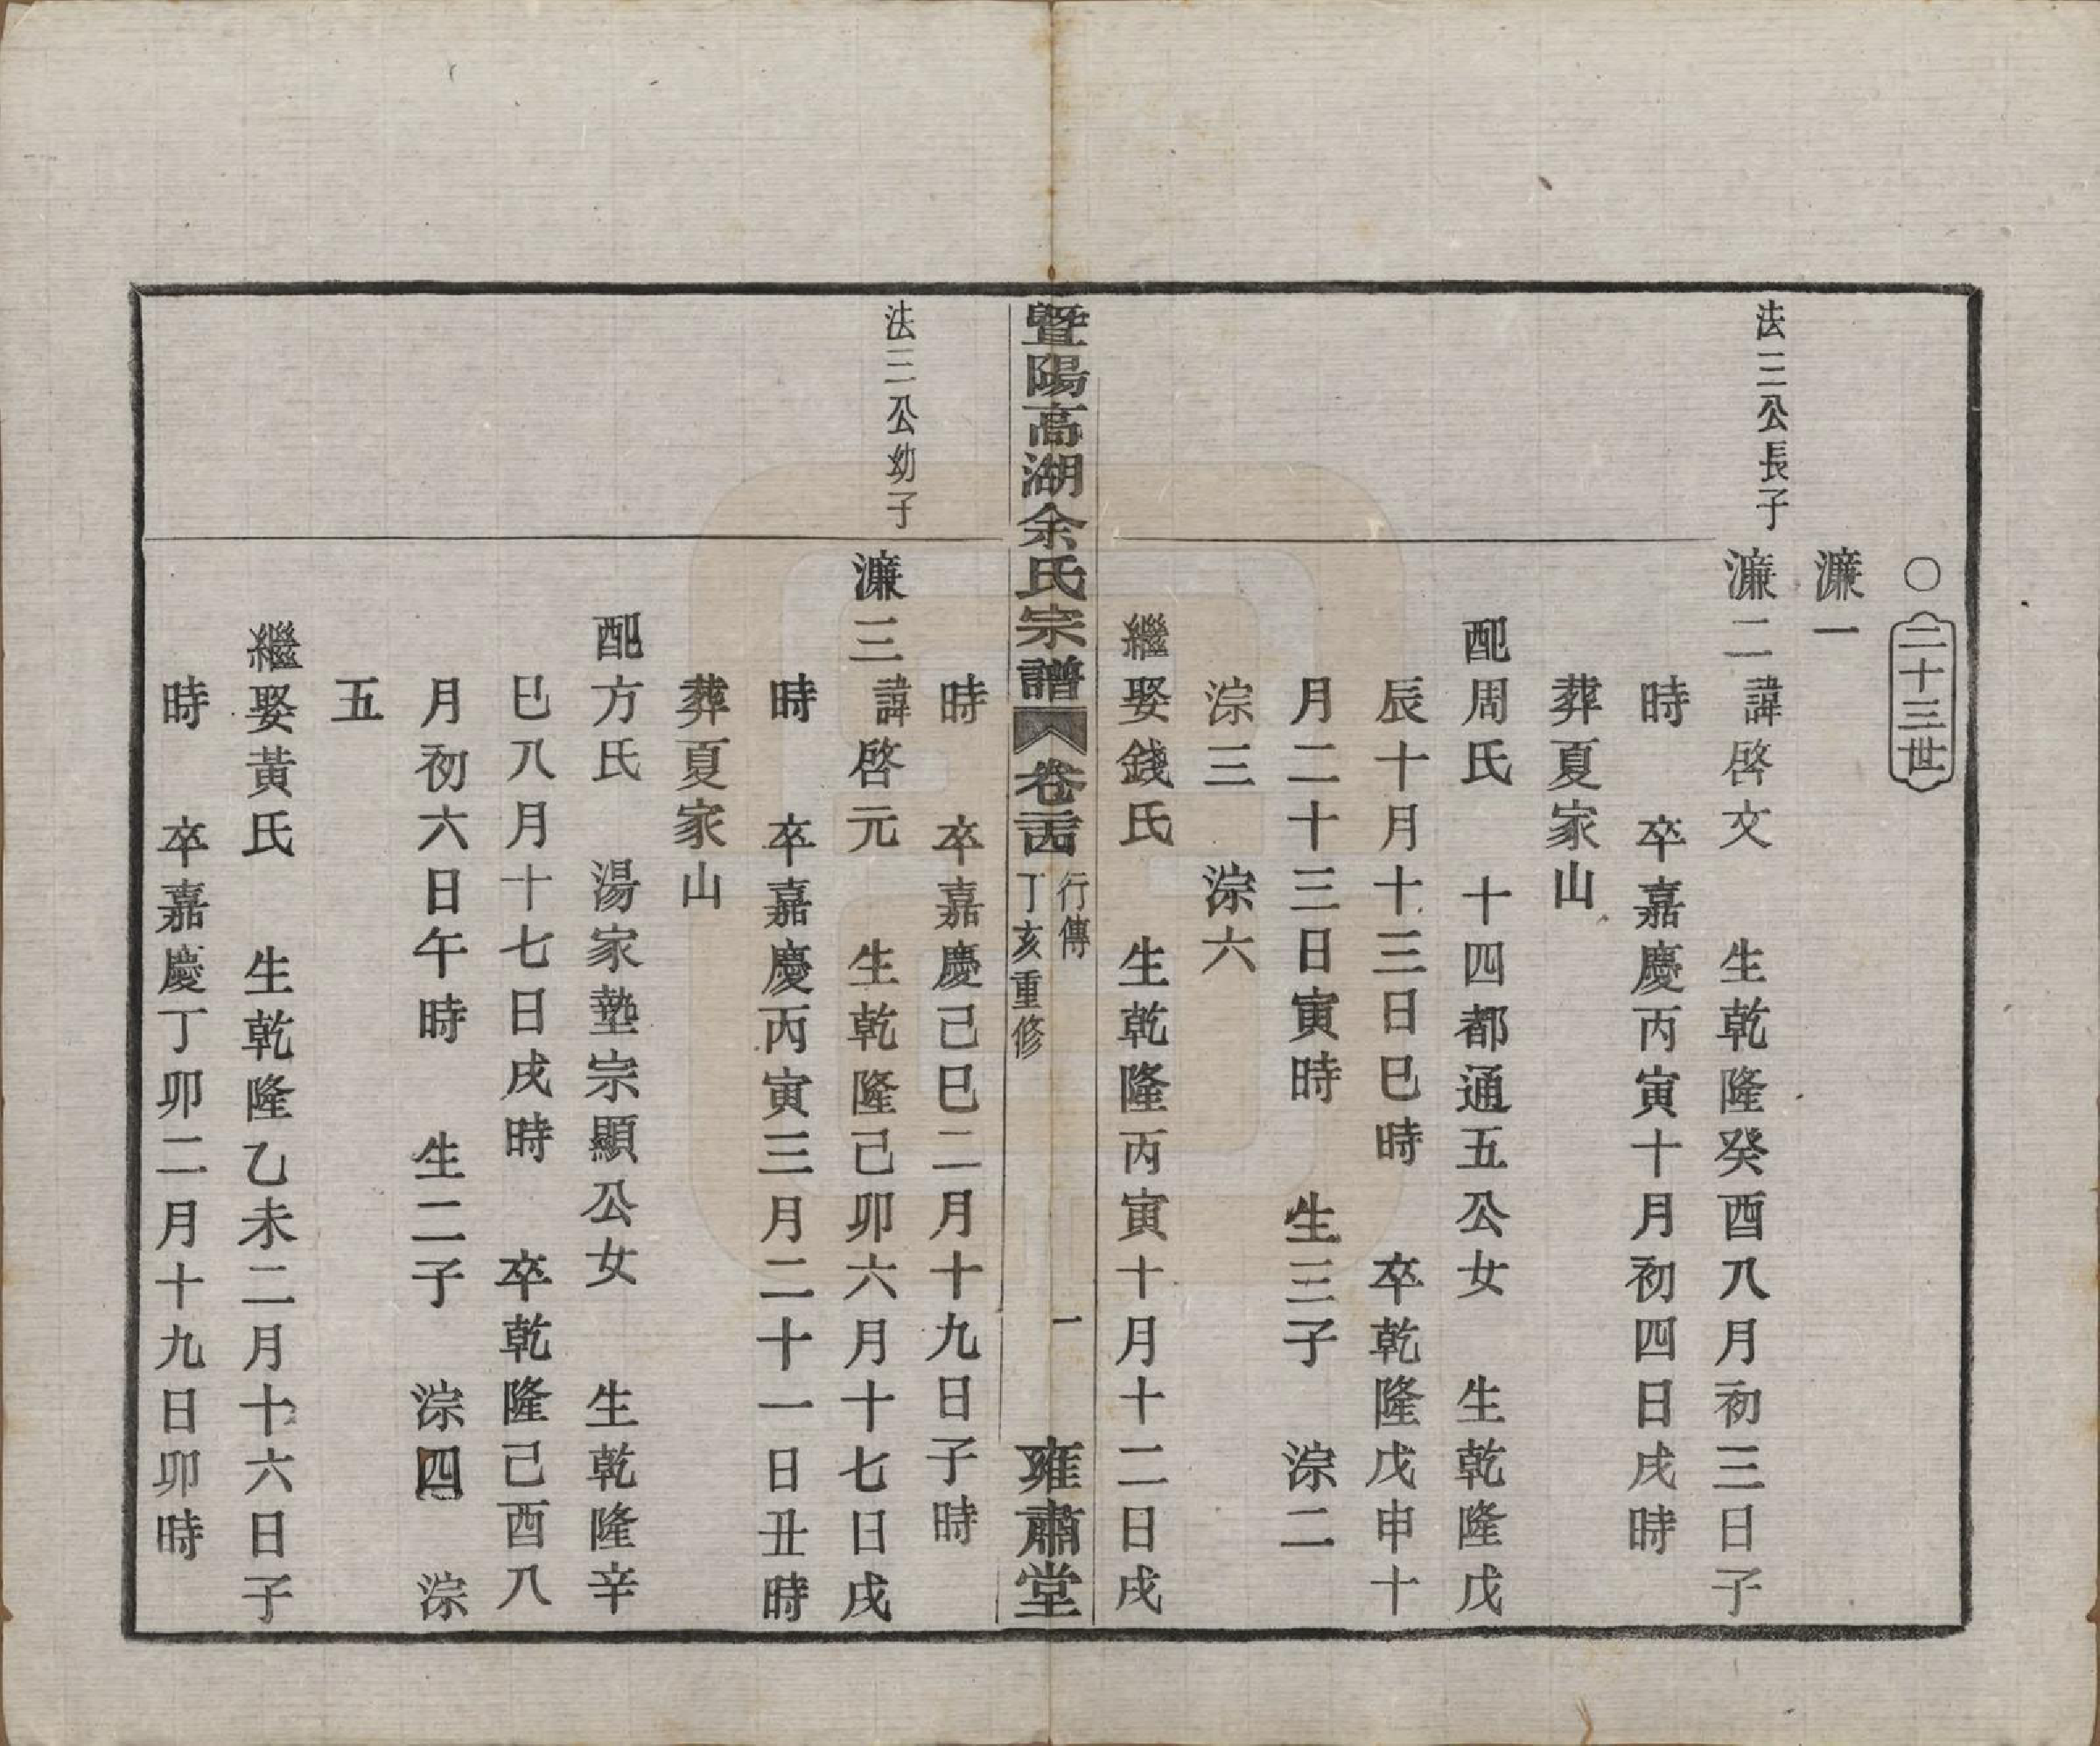 ○二十三世
濂一
法三公長子
濂二諱啓文　生乾隆癸酉八月初三日子
時　卒嘉慶丙寅十月初四日戌時
葬夏家山
配周氏　十四都通五公女　生乾隆戊
辰十月十三日巳時　卒乾隆戊申十
月二十三日寅時　生三子　淙二
淙三　淙六
繼娶錢氏　生乾隆丙寅十月十二日戌
暨陽高湖余氏宗譜　卷二十四　行傳　丁亥重修　一　雍肅堂
時　卒嘉慶己巳二月十九日子時
法三公幼子
濂三諱啓元　生乾隆己卯六月十七日戌
時　卒嘉慶丙寅三月二十一日丑時
葬夏家山
配方氏　湯家墊宗顯公女　生乾隆辛
巳八月十七日戌時　卒乾隆己酉八
月初六日午時　生二子　淙四　淙
五
繼娶黃氏　生乾隆乙未二月十六日子
時　卒嘉慶丁卯二月十九日卯時